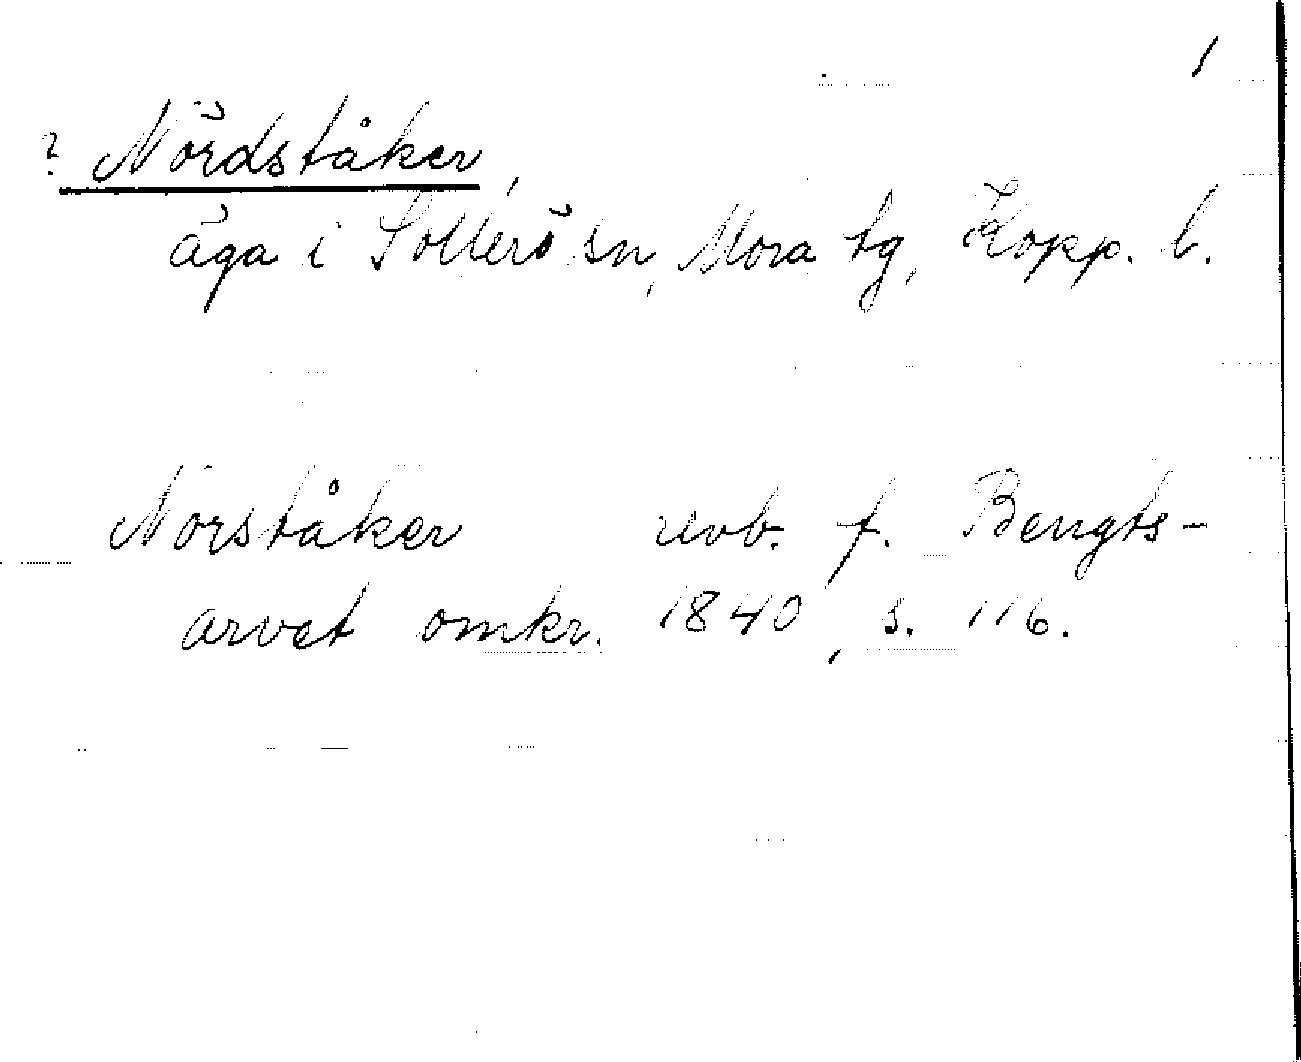 1
? Nördståker,
äga i Sollerö sn, Mora tg, Kopp. l.
Norståker revb. f. Bengts-
arvet omkr. 1840, s. 116.